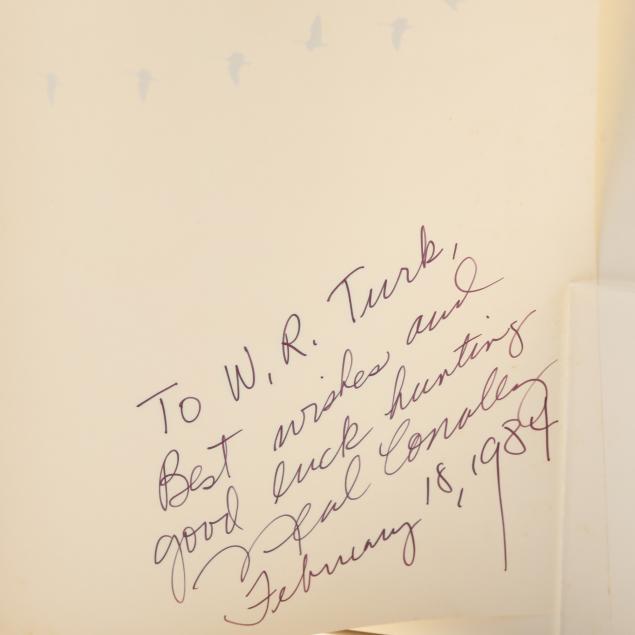 To W.R. Turk,
Best wishes and
good luck hunting
Neal Conolley
February 18, 1984